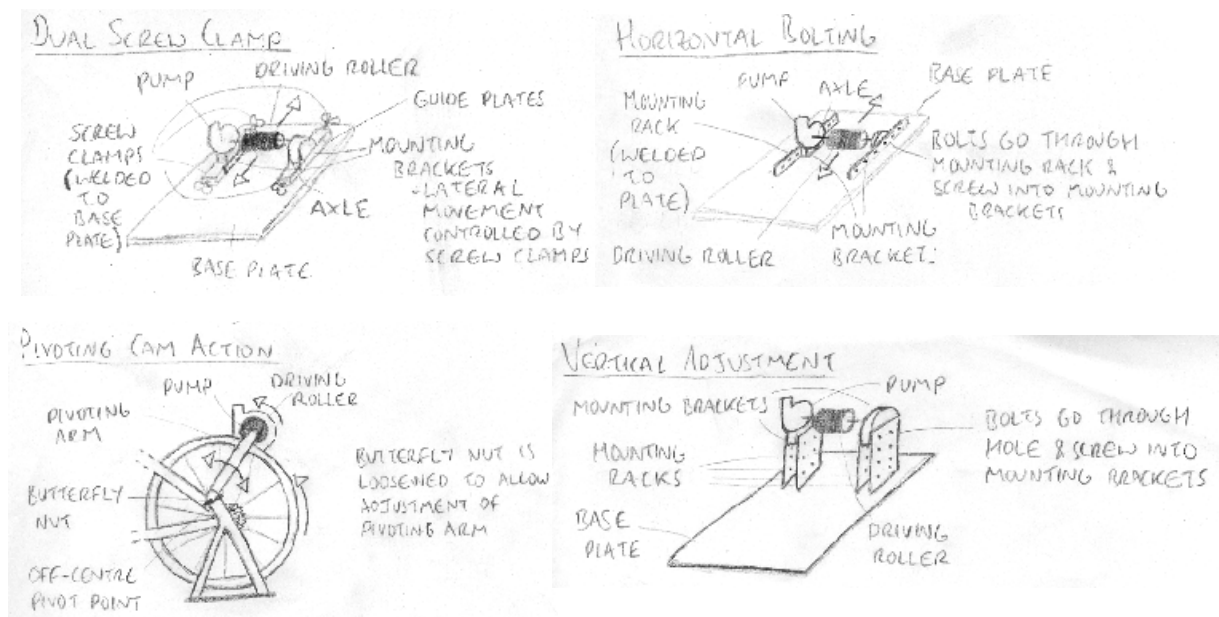 DUAL SCREW CLAMP
PUMP
DRIVING ROLLER
GUIDE PLATES
SCREW
CLAMPS
(WELDED
TO
BASE
PLATE)
MOUNTING
BRACKETS
- LATERAL
MOVEMENT
CONTROLLED BY
SCREW CLAMPS
AXLE
BASE PLATE
HORIZONTAL BOLTING
PUMP
AXLE
BASE PLATE
MOUNTING
RACK
(WELDED
TO
PLATE)
BOLTS GO THROUGH
MOUNTING RACK &
SCREW INTO MOUNTING
BRACKETS
DRIVING ROLLER
MOUNTING
BRACKETS
PIVOTING CAM ACTION
PUMP
DRIVING
ROLLER
PIVOTING
ARM
BUTTERFLY
NUT
OFF-CENTRE
PIVOT POINT
BUTTERFLY NUT IS
LOOSENED TO ALLOW
ADJUSTMENT OF
PIVOTING ARM
VERTICAL ADJUSTMENT
PUMP
MOUNTING BRACKETS
MOUNTING
RACKS
BASE
PLATE
DRIVING
ROLLER
BOLTS GO THROUGH
HOLE & SCREW INTO
MOUNTING BRACKETS